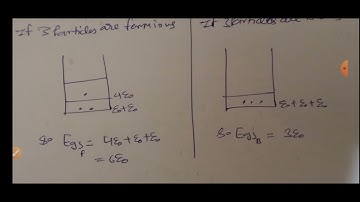 If 3 Particles are fermions
4ε₀
ε₀+ε₀
So Egs_F = 4ε₀+ε₀+ε₀
= 6ε₀
If 3 Particles are
ε₀+ε₀+ε₀
So Egs_B = 3ε₀